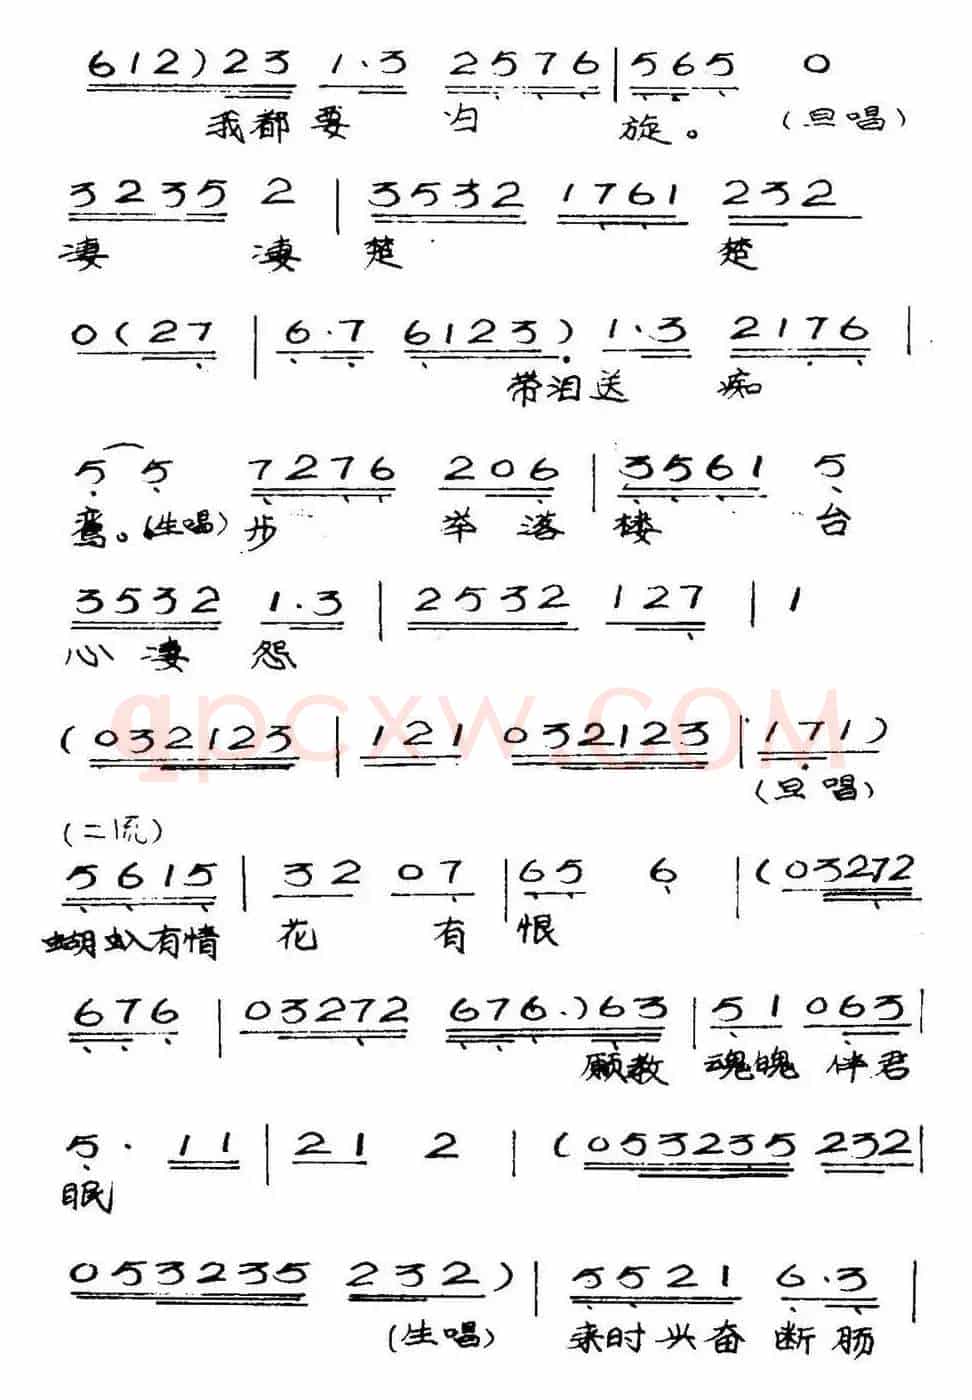 612) 23 1·3 2576 | 565 0
我都要归旋。(旦唱)
3235 2 | 3532 1761 232
凄凄楚楚
0 (27 | 6·7 6123) 1·3 2176 |
带泪送痴
5 5 7276 206 | 3561 5
鸾。(生唱)步举落楼台
3532 1·3 | 2532 127 | 1
心凄怨
qpcxw.COM
(032123 | 121 032123 | 171)
(旦唱)
(二流)
5615 | 32 07 | 65 6 | (03272
蝴 有情花有恨
676 | 03272 676·) 63 | 51 063 |
愿教魂魄伴君
5· 11 | 21 2 | (053235 232 |
眠
053235 232) | 5521 6·3 |
(生唱) 来时兴奋断肠